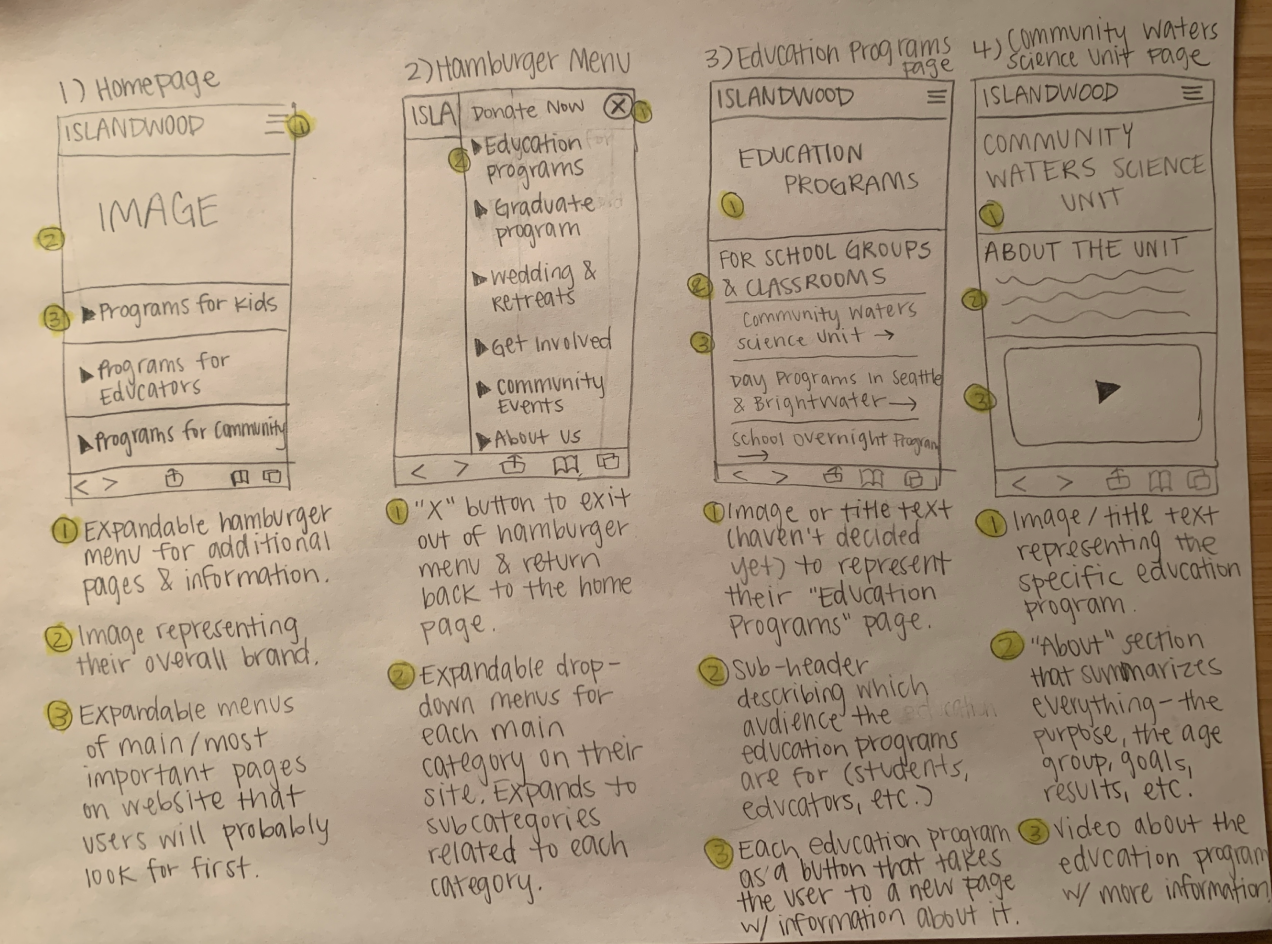 1) Homepage
ISLANDWOOD
1
IMAGE
2
3
Programs for Kids
Programs for
Educators
Programs for Community
1 Expandable hamburger
menu for additional
pages & information.
2 Image representing
their overall brand.
3 Expandable menus
of main/most
important pages
on website that
users will probably
look for first.
2) Hamburger Menu
ISLA
Donate Now X
1
2
Education
programs
Graduate
program
Wedding &
Retreats
Get Involved
Community
Events
About Us
1 "X" button to exit
out of hamburger
menu & return
back to the home
page.
2 Expandable drop-
down menus for
each main
category on their
site. Expands to
subcategories
related to each
category.
3) Education Programs
page
ISLANDWOOD
EDUCATION
PROGRAMS
1
FOR SCHOOL GROUPS
2 & CLASSROOMS
Community Waters
3 Science Unit →
Day Programs in Seattle
& Brightwater →
School Overnight Program
→
1 Image or title text
(haven't decided
yet) to represent
their "Education
Programs" page.
2 Sub-header
describing which
audience the
education programs
are for (students,
educators, etc.)
3 Each education program
as a button that takes
the user to a new page
w/ information about it.
4) Community Waters
Science Unit page
ISLANDWOOD
COMMUNITY
WATERS SCIENCE
1 UNIT
ABOUT THE UNIT
2
3
1 Image/title text
representing the
specific education
program.
2 "About" section
that summarizes
everything - the
purpose, the age
group, goals,
results, etc.
3 Video about the
education program
w/ more information